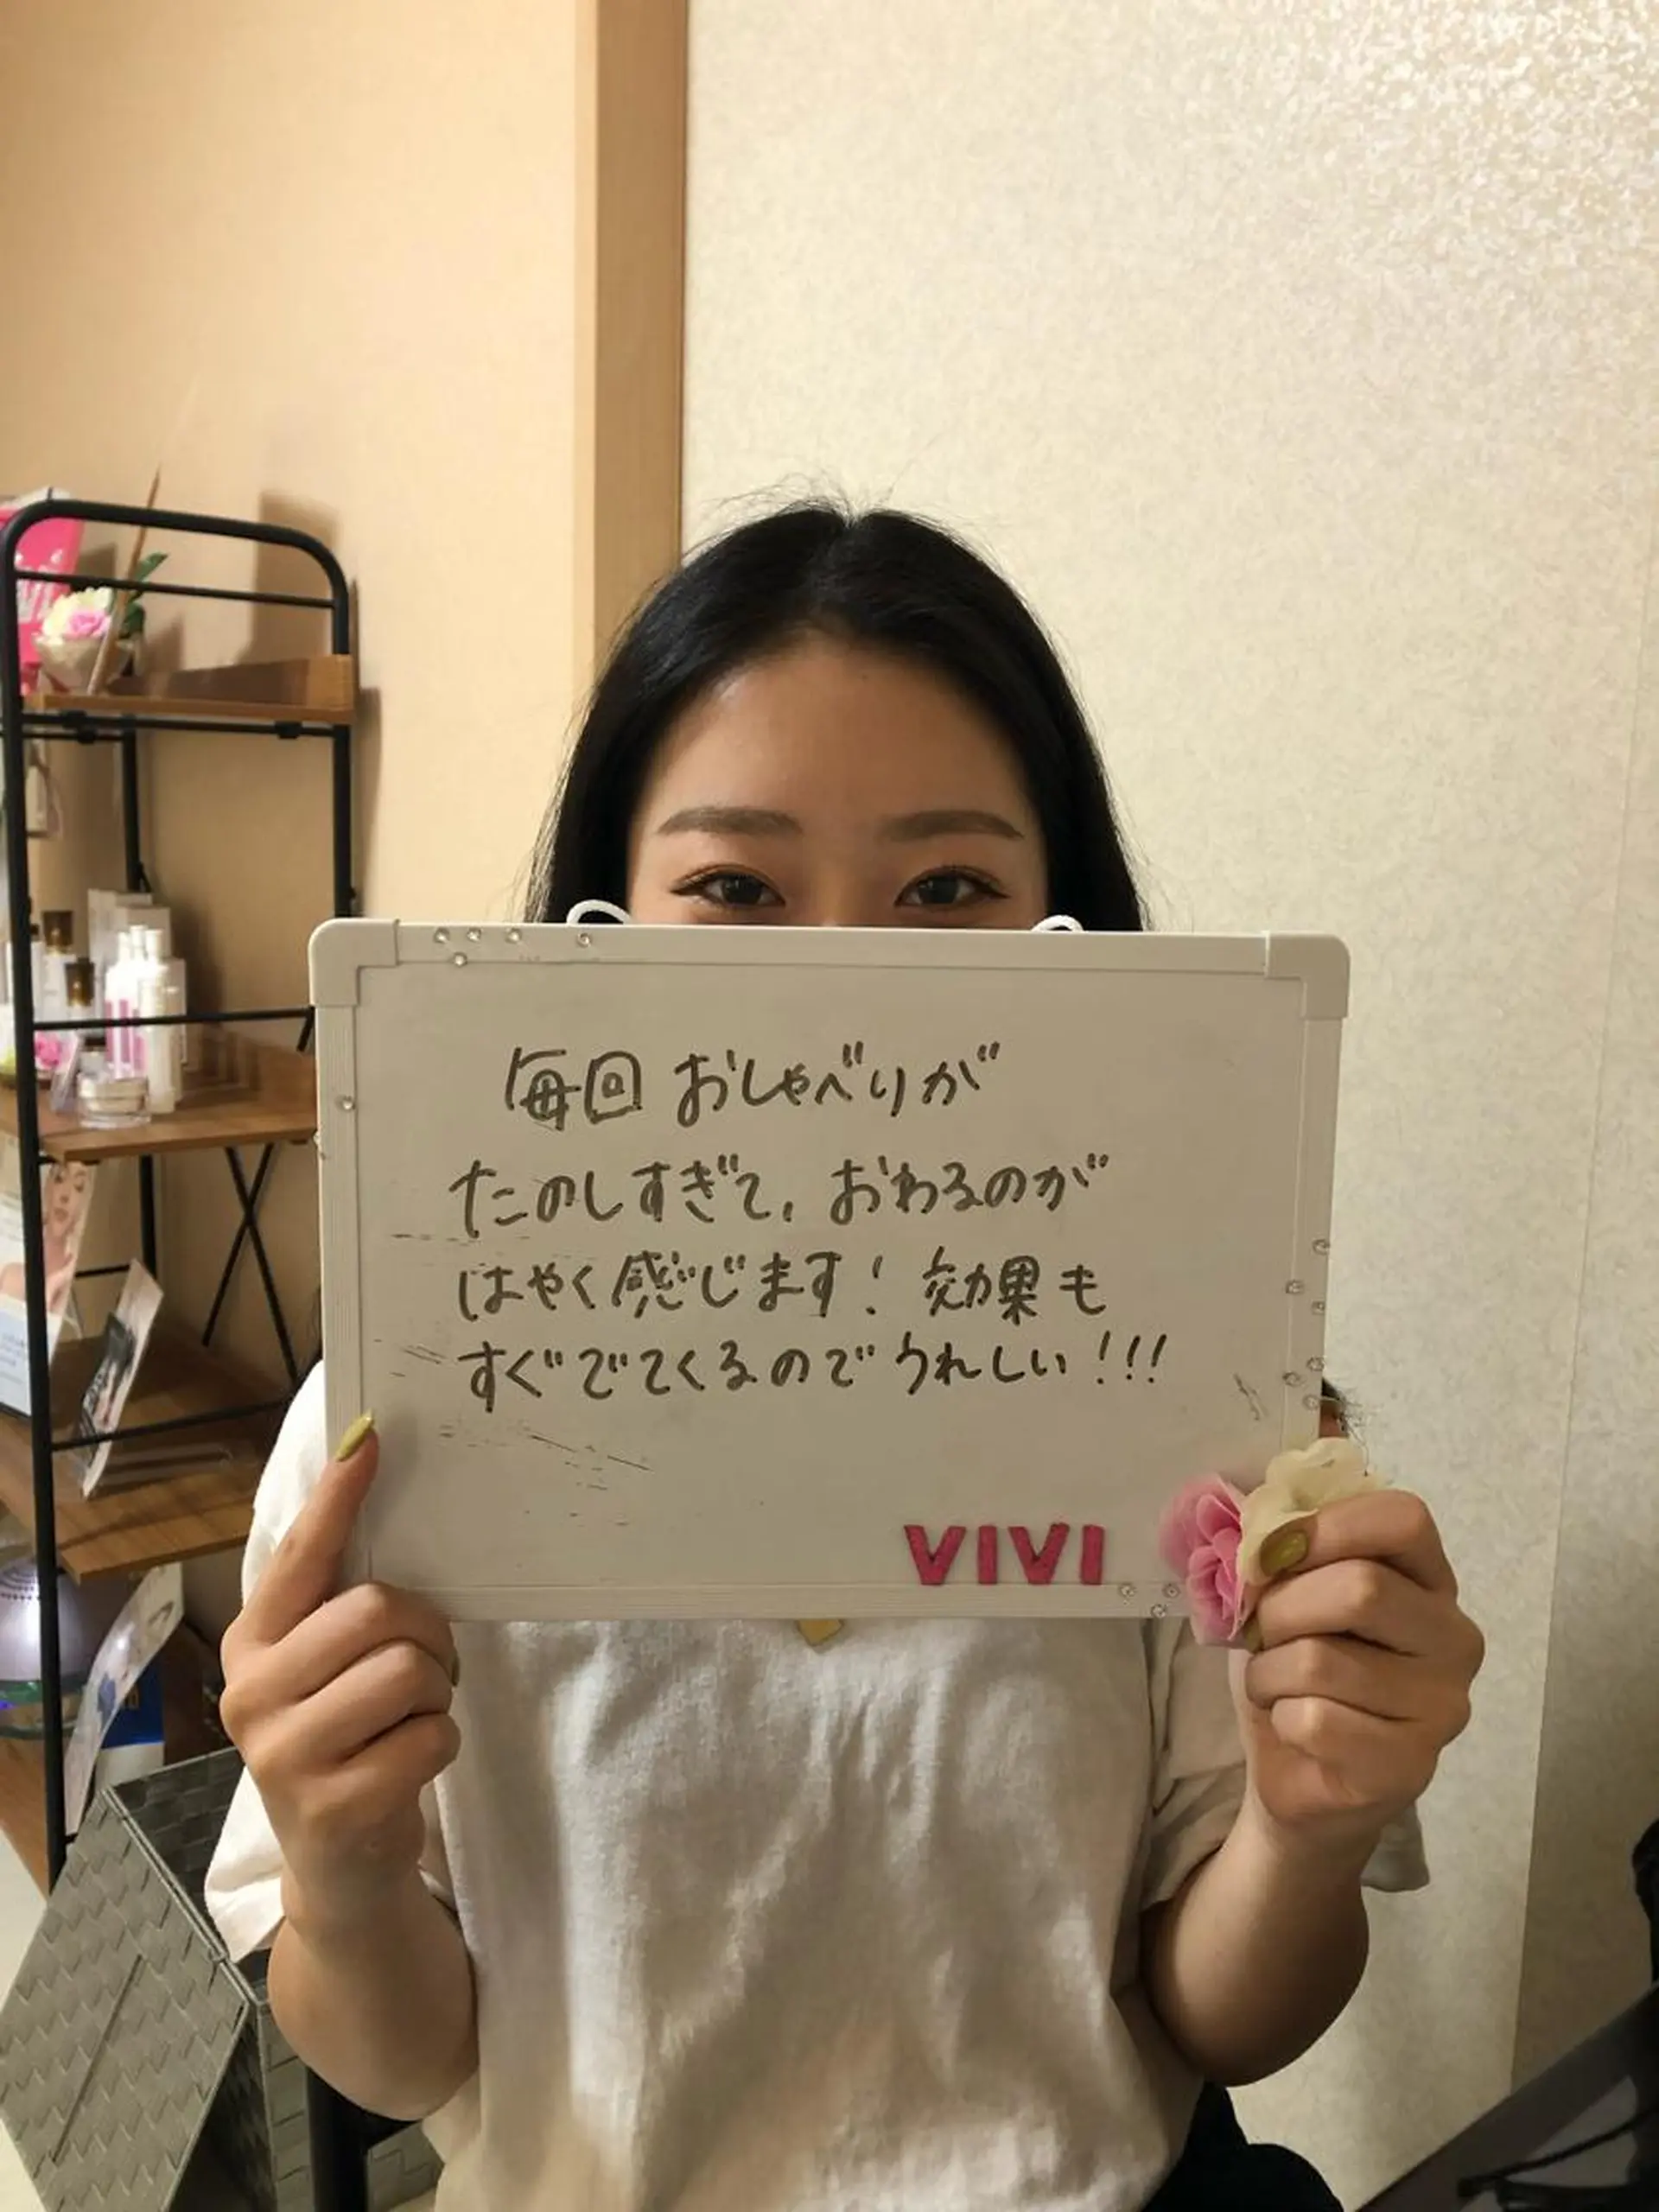 毎回 おしゃべりが
たのしすぎて、おわるのが
はやく感じます！効果も
すぐでてくるのでうれしい！！！
VIVI